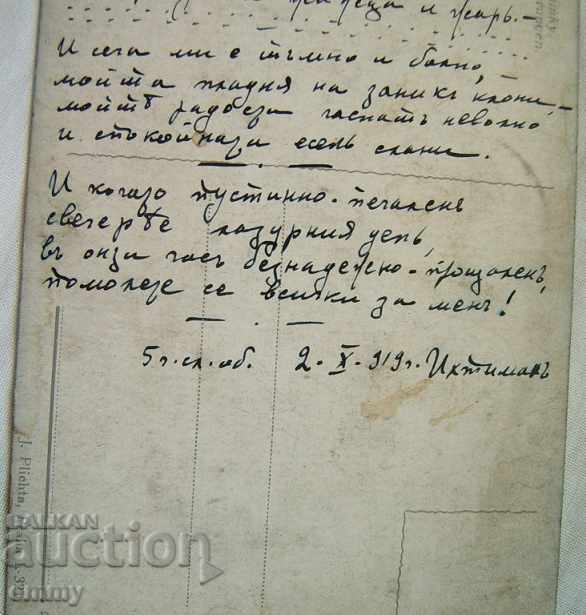 и жаръ. –
И сега ми е тъмно и болно,
мойта пладня на заникъ клони, –
мойтѣ радости гаснатъ неволно
и спокойната есень слани.
И когато пустинно-печаленъ
свечерѣе лазурния день,
въ онзи часъ безнадежно-прощаленъ,
помолете се всички за менъ!
5 ч. сл. об. 2. X. 919 г. Ихтиманъ
J. Plichta,
BALKAN
auction
emmy